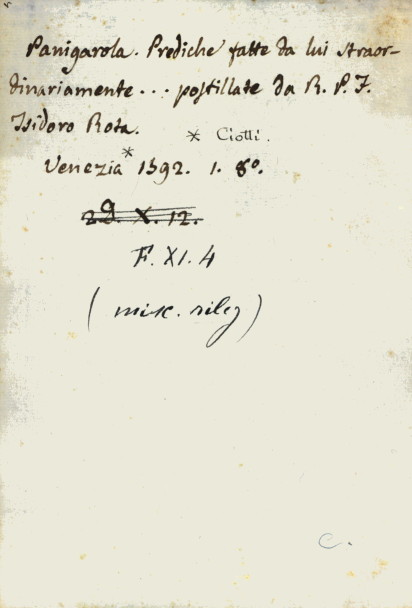 Panigarola. Prediche fatte da lui straor-
dinariamente... postillate da R. P. F.
Isidoro Rota.
* Ciotti.
Venezia * 1592. 1. 8º.
F. XI. 4
(misc. rileg)
C.